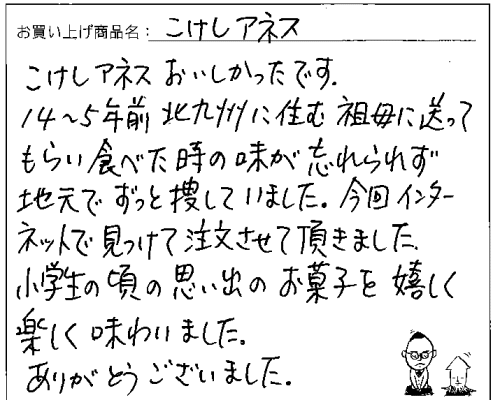 お買い上げ商品名：こけしアネス
こけしアネスおいしかったです.
14〜5年前北九州に住む祖母に送って
もらい食べた時の味が忘れられず
地元でずっと捜していました。今回インター
ネットで見つけて注文させて頂きました.
小学生の頃の思い出のお菓子を嬉しく
楽しく味わいました.
ありがとうございました。